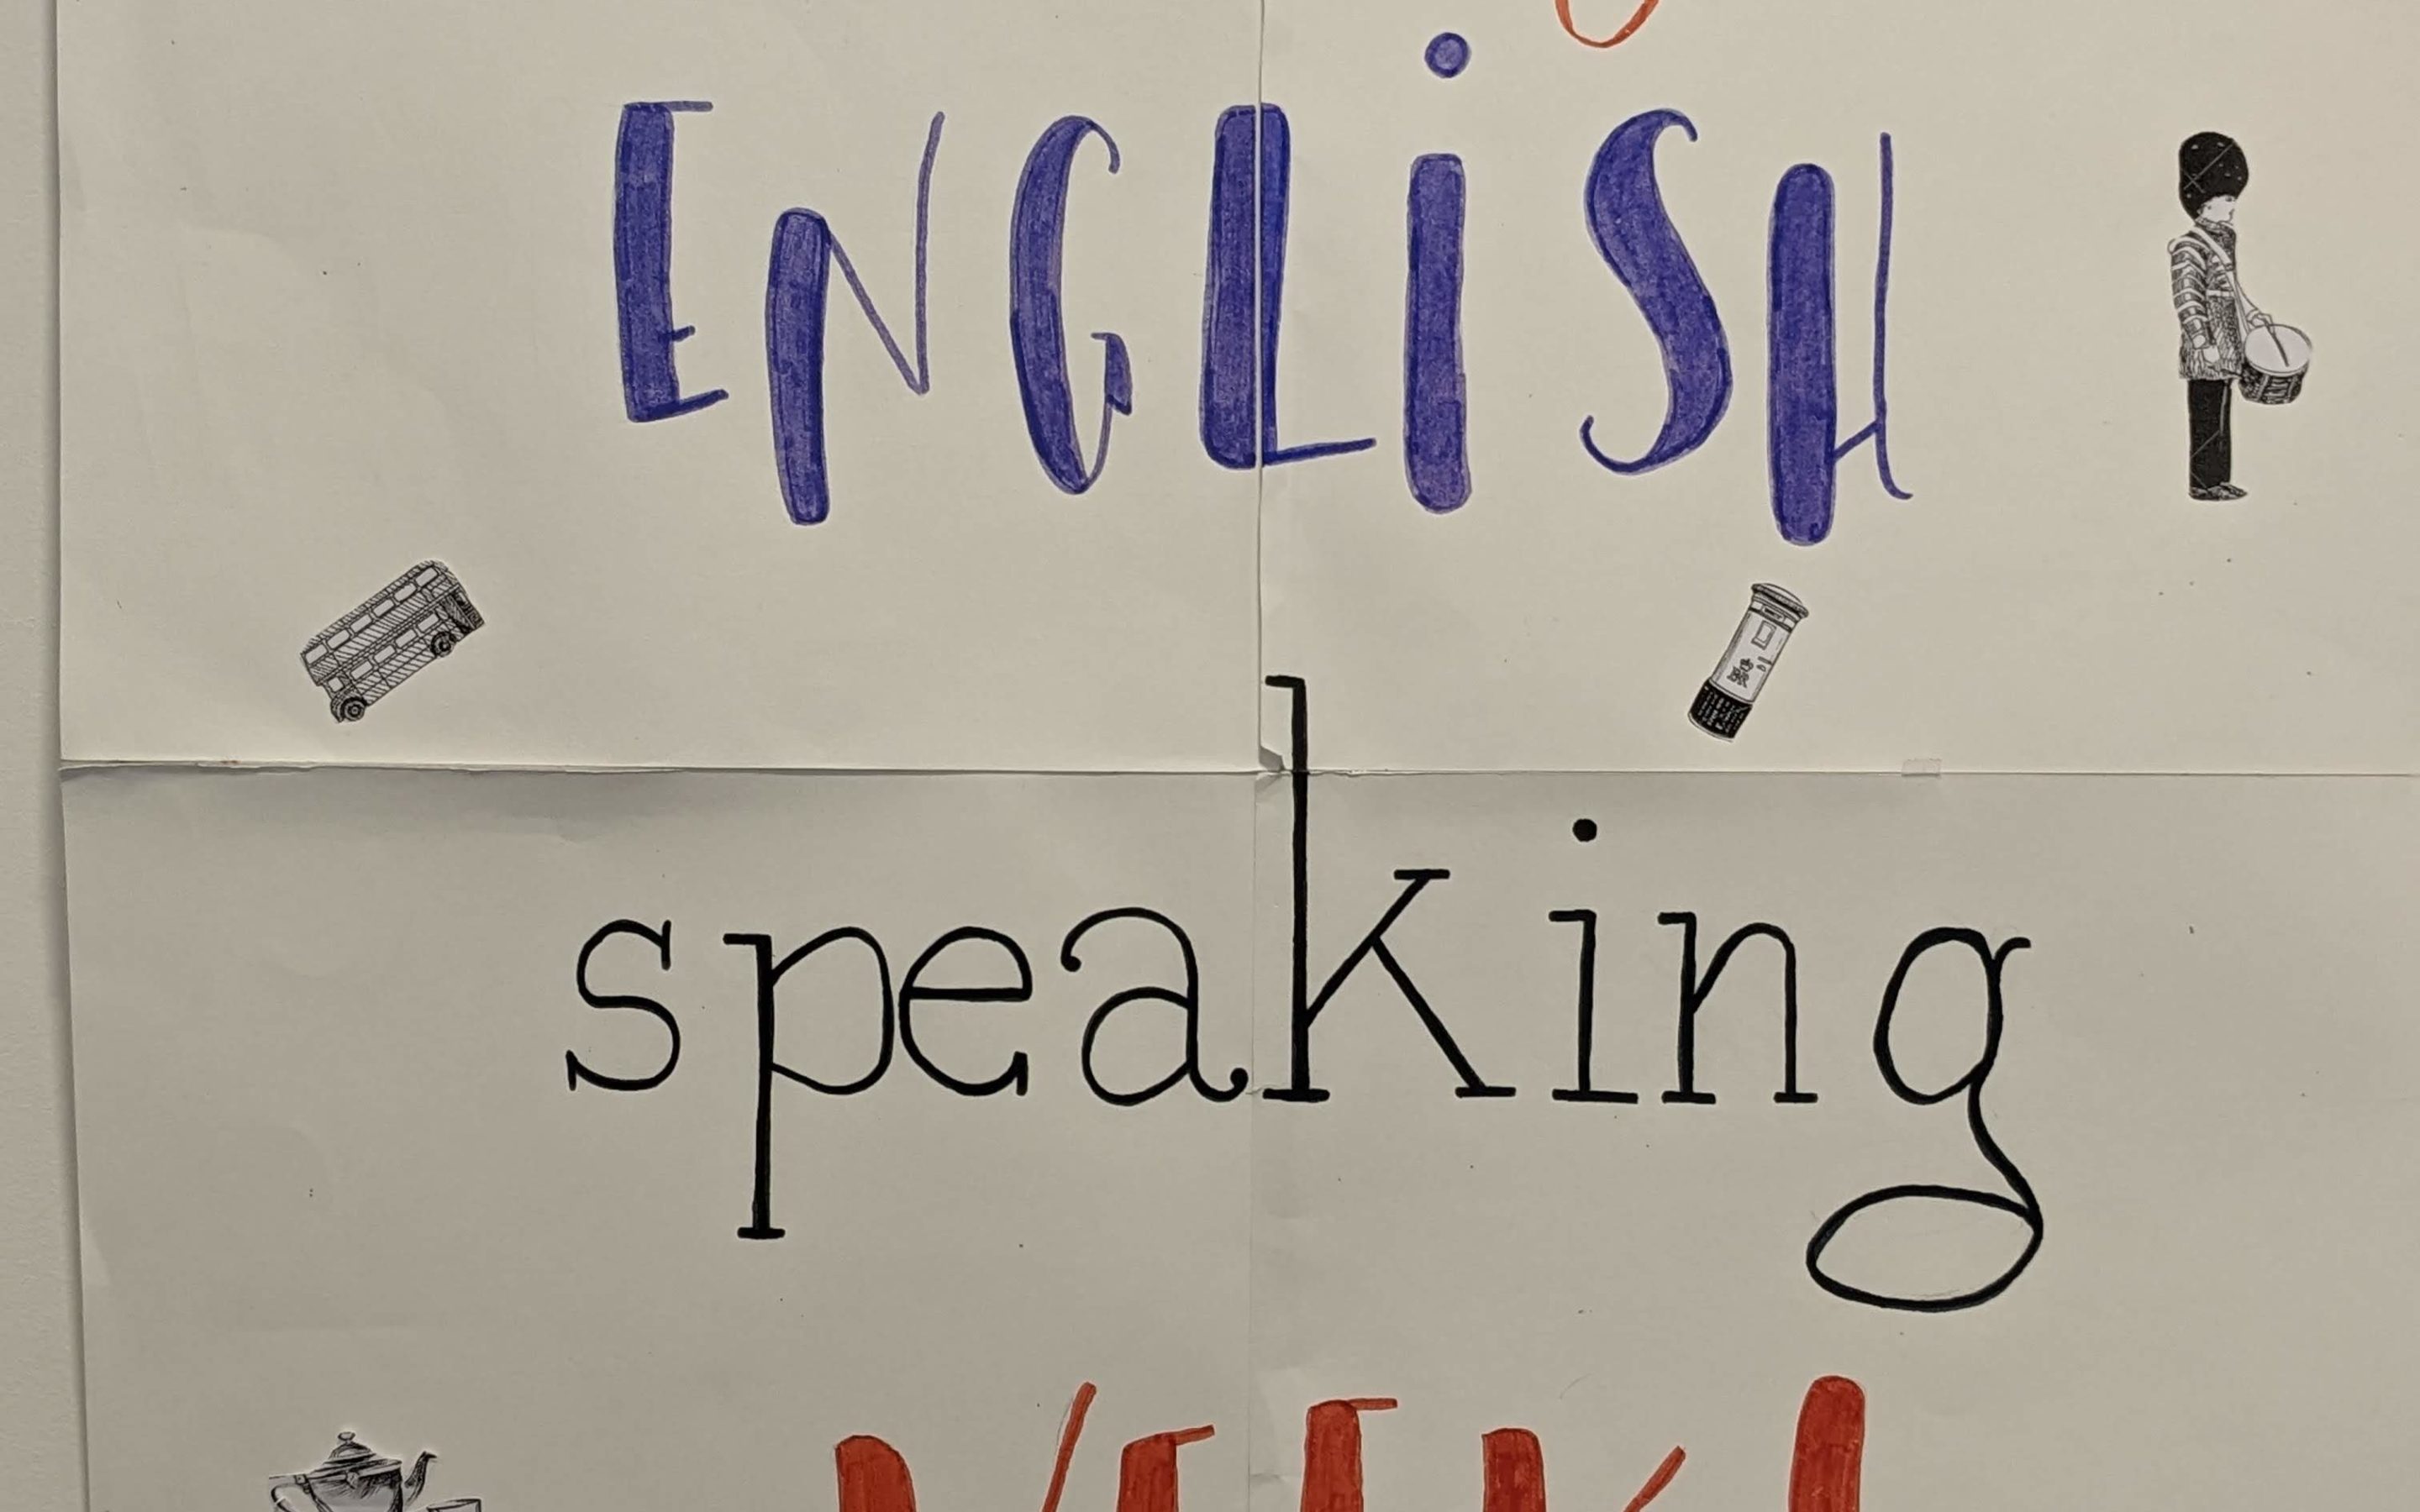 ENGLiSH
speaking